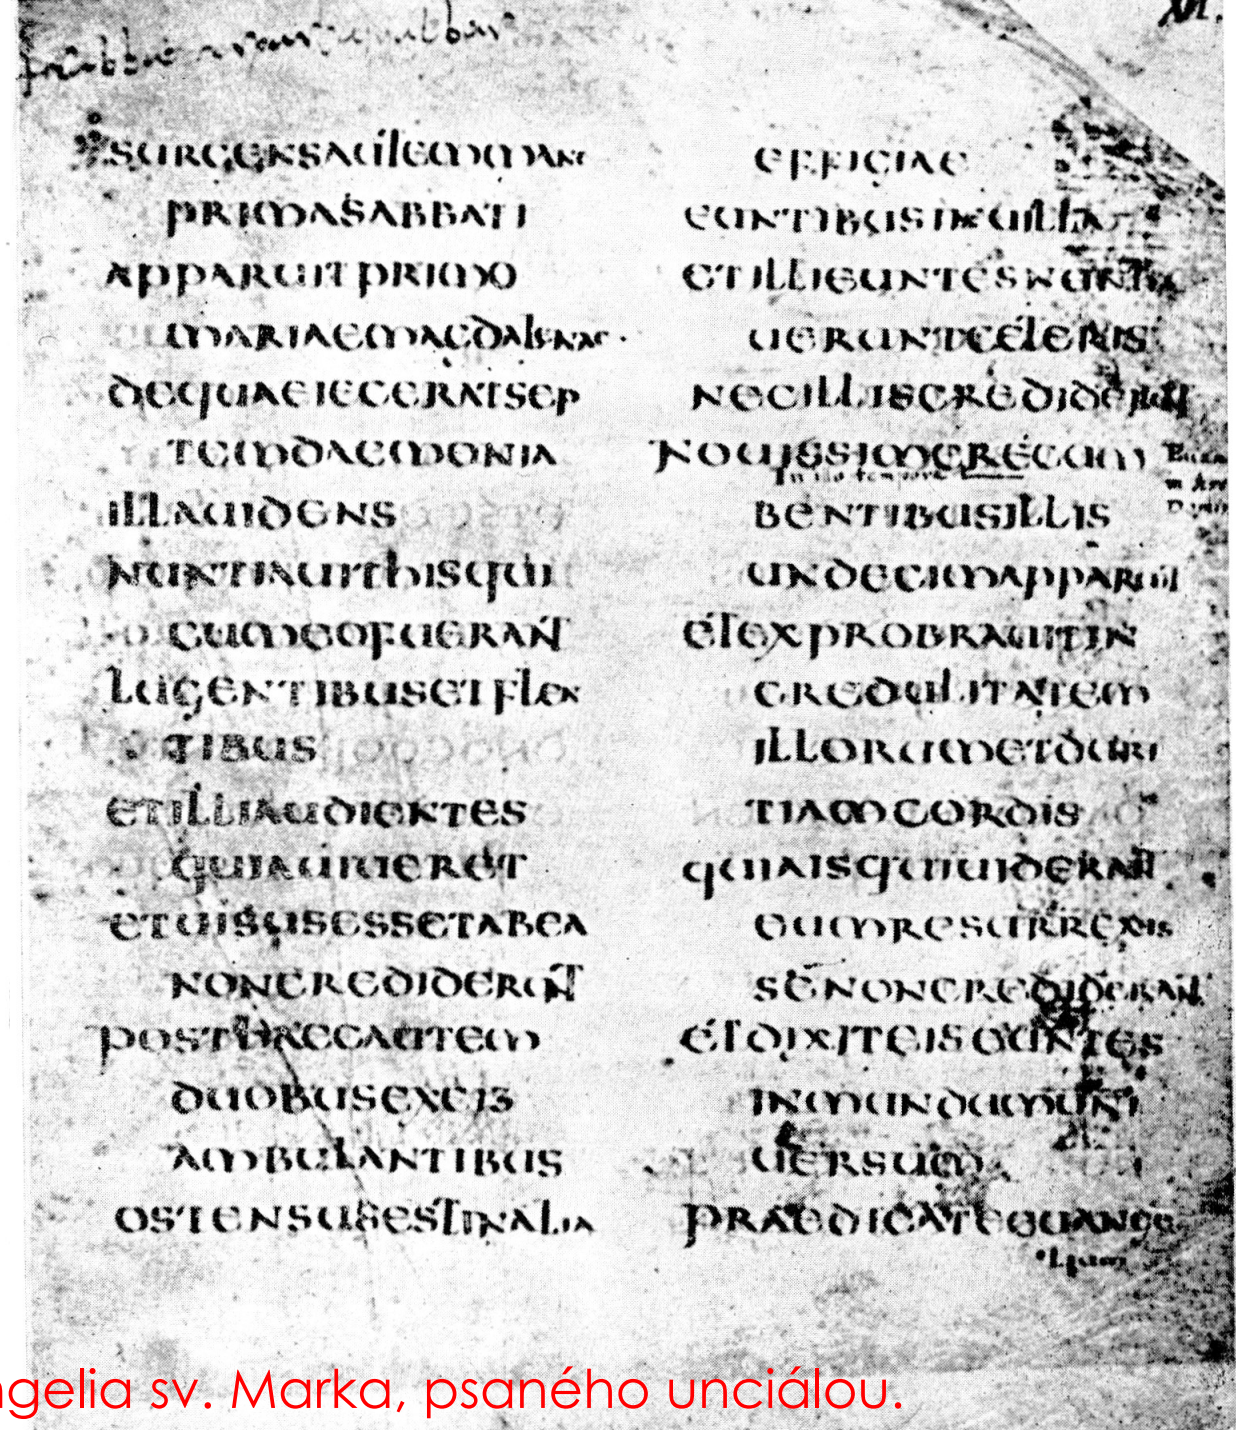 XII.
SURGENSAUTEMMAN
PRIMASABBATI
APPARUITPRIMO
MARIAEMAGDALENAE·
DEQUAEIECERATSEP
TEMDAEMONIA
ILLAUIDENS
NUNTIAUITHISQUI
CUMEOFUERANT
LUGENTIBUSETFLEN
TIBUS
ETILLIAUDIENTES
QUIAUIUERET
ETUISUSESSETABEA
NONCREDIDERUNT
POSTHAECAUTEM
DUOBUSEXEIS
AMBULANTIBUS
OSTENSUSESTINALIA
EFFIGIAE
EUNTIBUSINUILLA
ETILLIEUNTESNUNTIA
UERUNTCETERIS
NECILLISCREDIDERUNT
NOUISSIMERECUM
In illo tempore
BENTIBUSILLIS
UNDECIMAPPARUIT
ETEXPROBRAUITIN
CREDULITATEM
ILLORUMETDURI
TIAMCORDIS
QUIAISQUIUIDERANT
EUMRESURREXIS
SENONCREDIDERANT
ETDIXITEISEUNTES
INMUNDUMUNI
UERSUM
PRAEDICATEEUANGE
lium
ngelia sv. Marka, psaného unciálou.